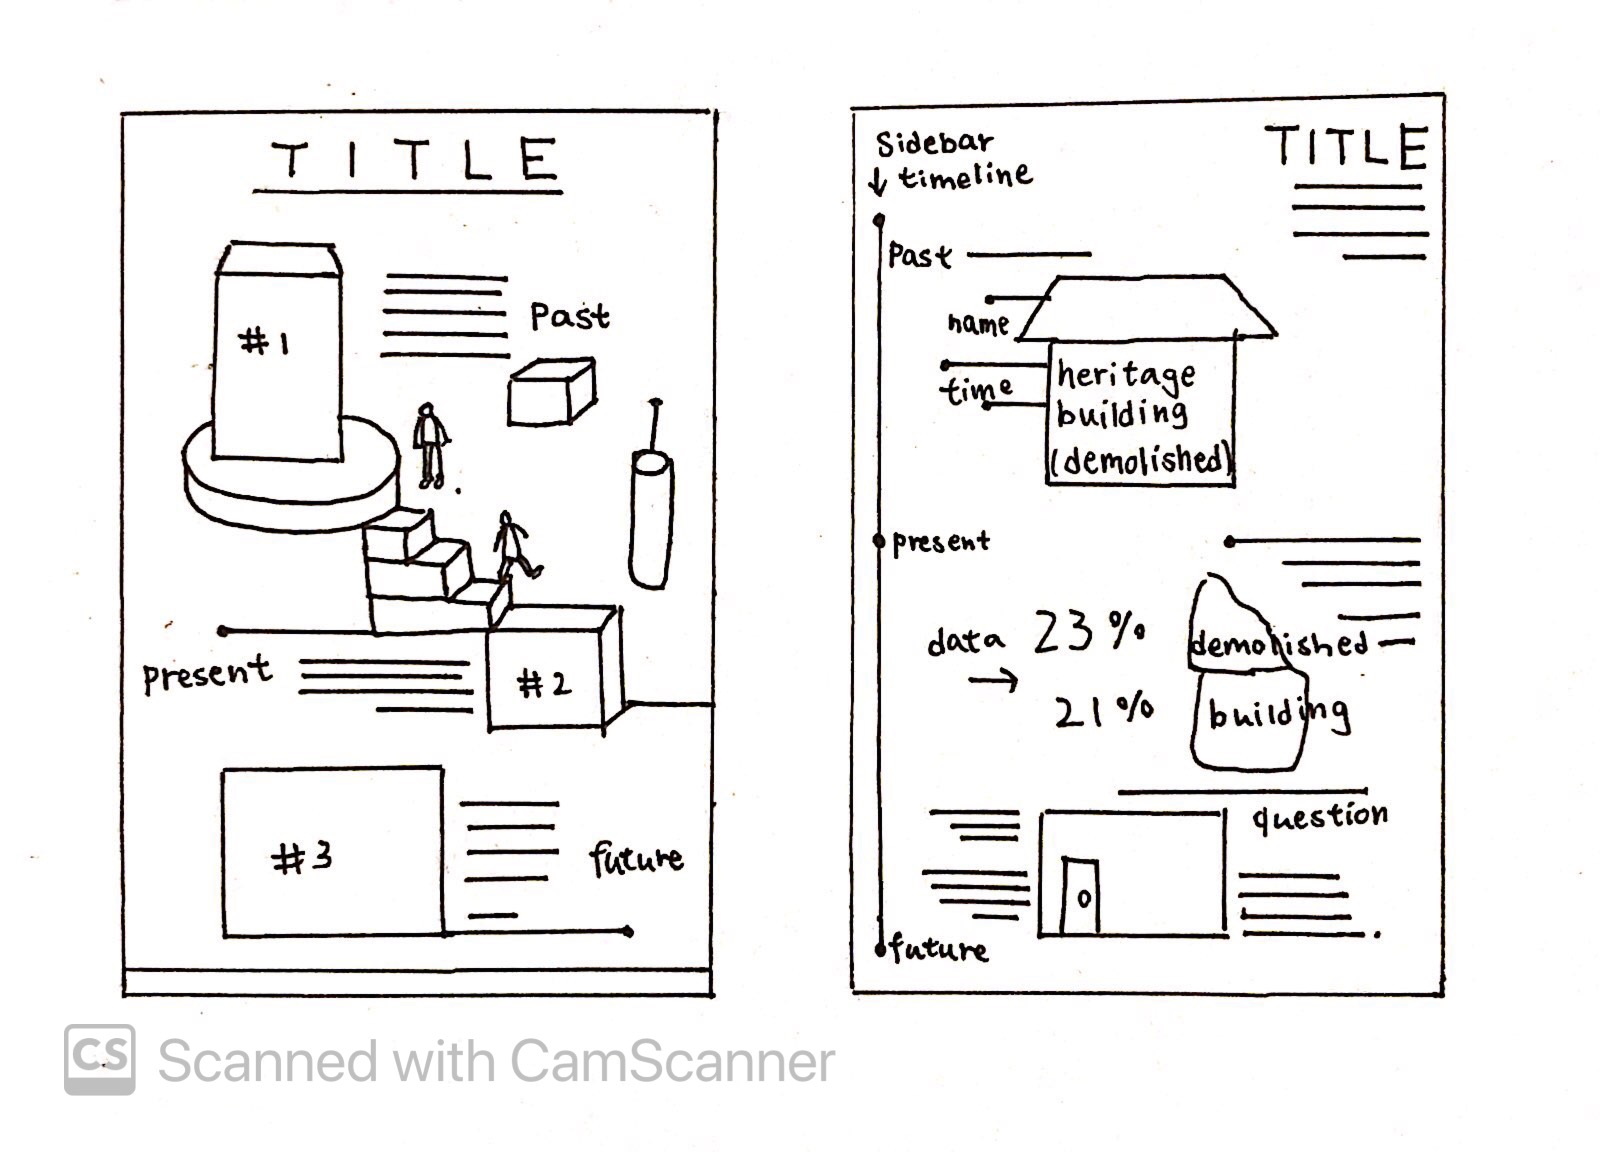 TITLE
#1
Past
present
#2
#3
future
Sidebar
timeline
TITLE
Past
name
time
heritage
building
(demolished)
present
data
23%
demolished
21%
building
question
future
CS Scanned with CamScanner